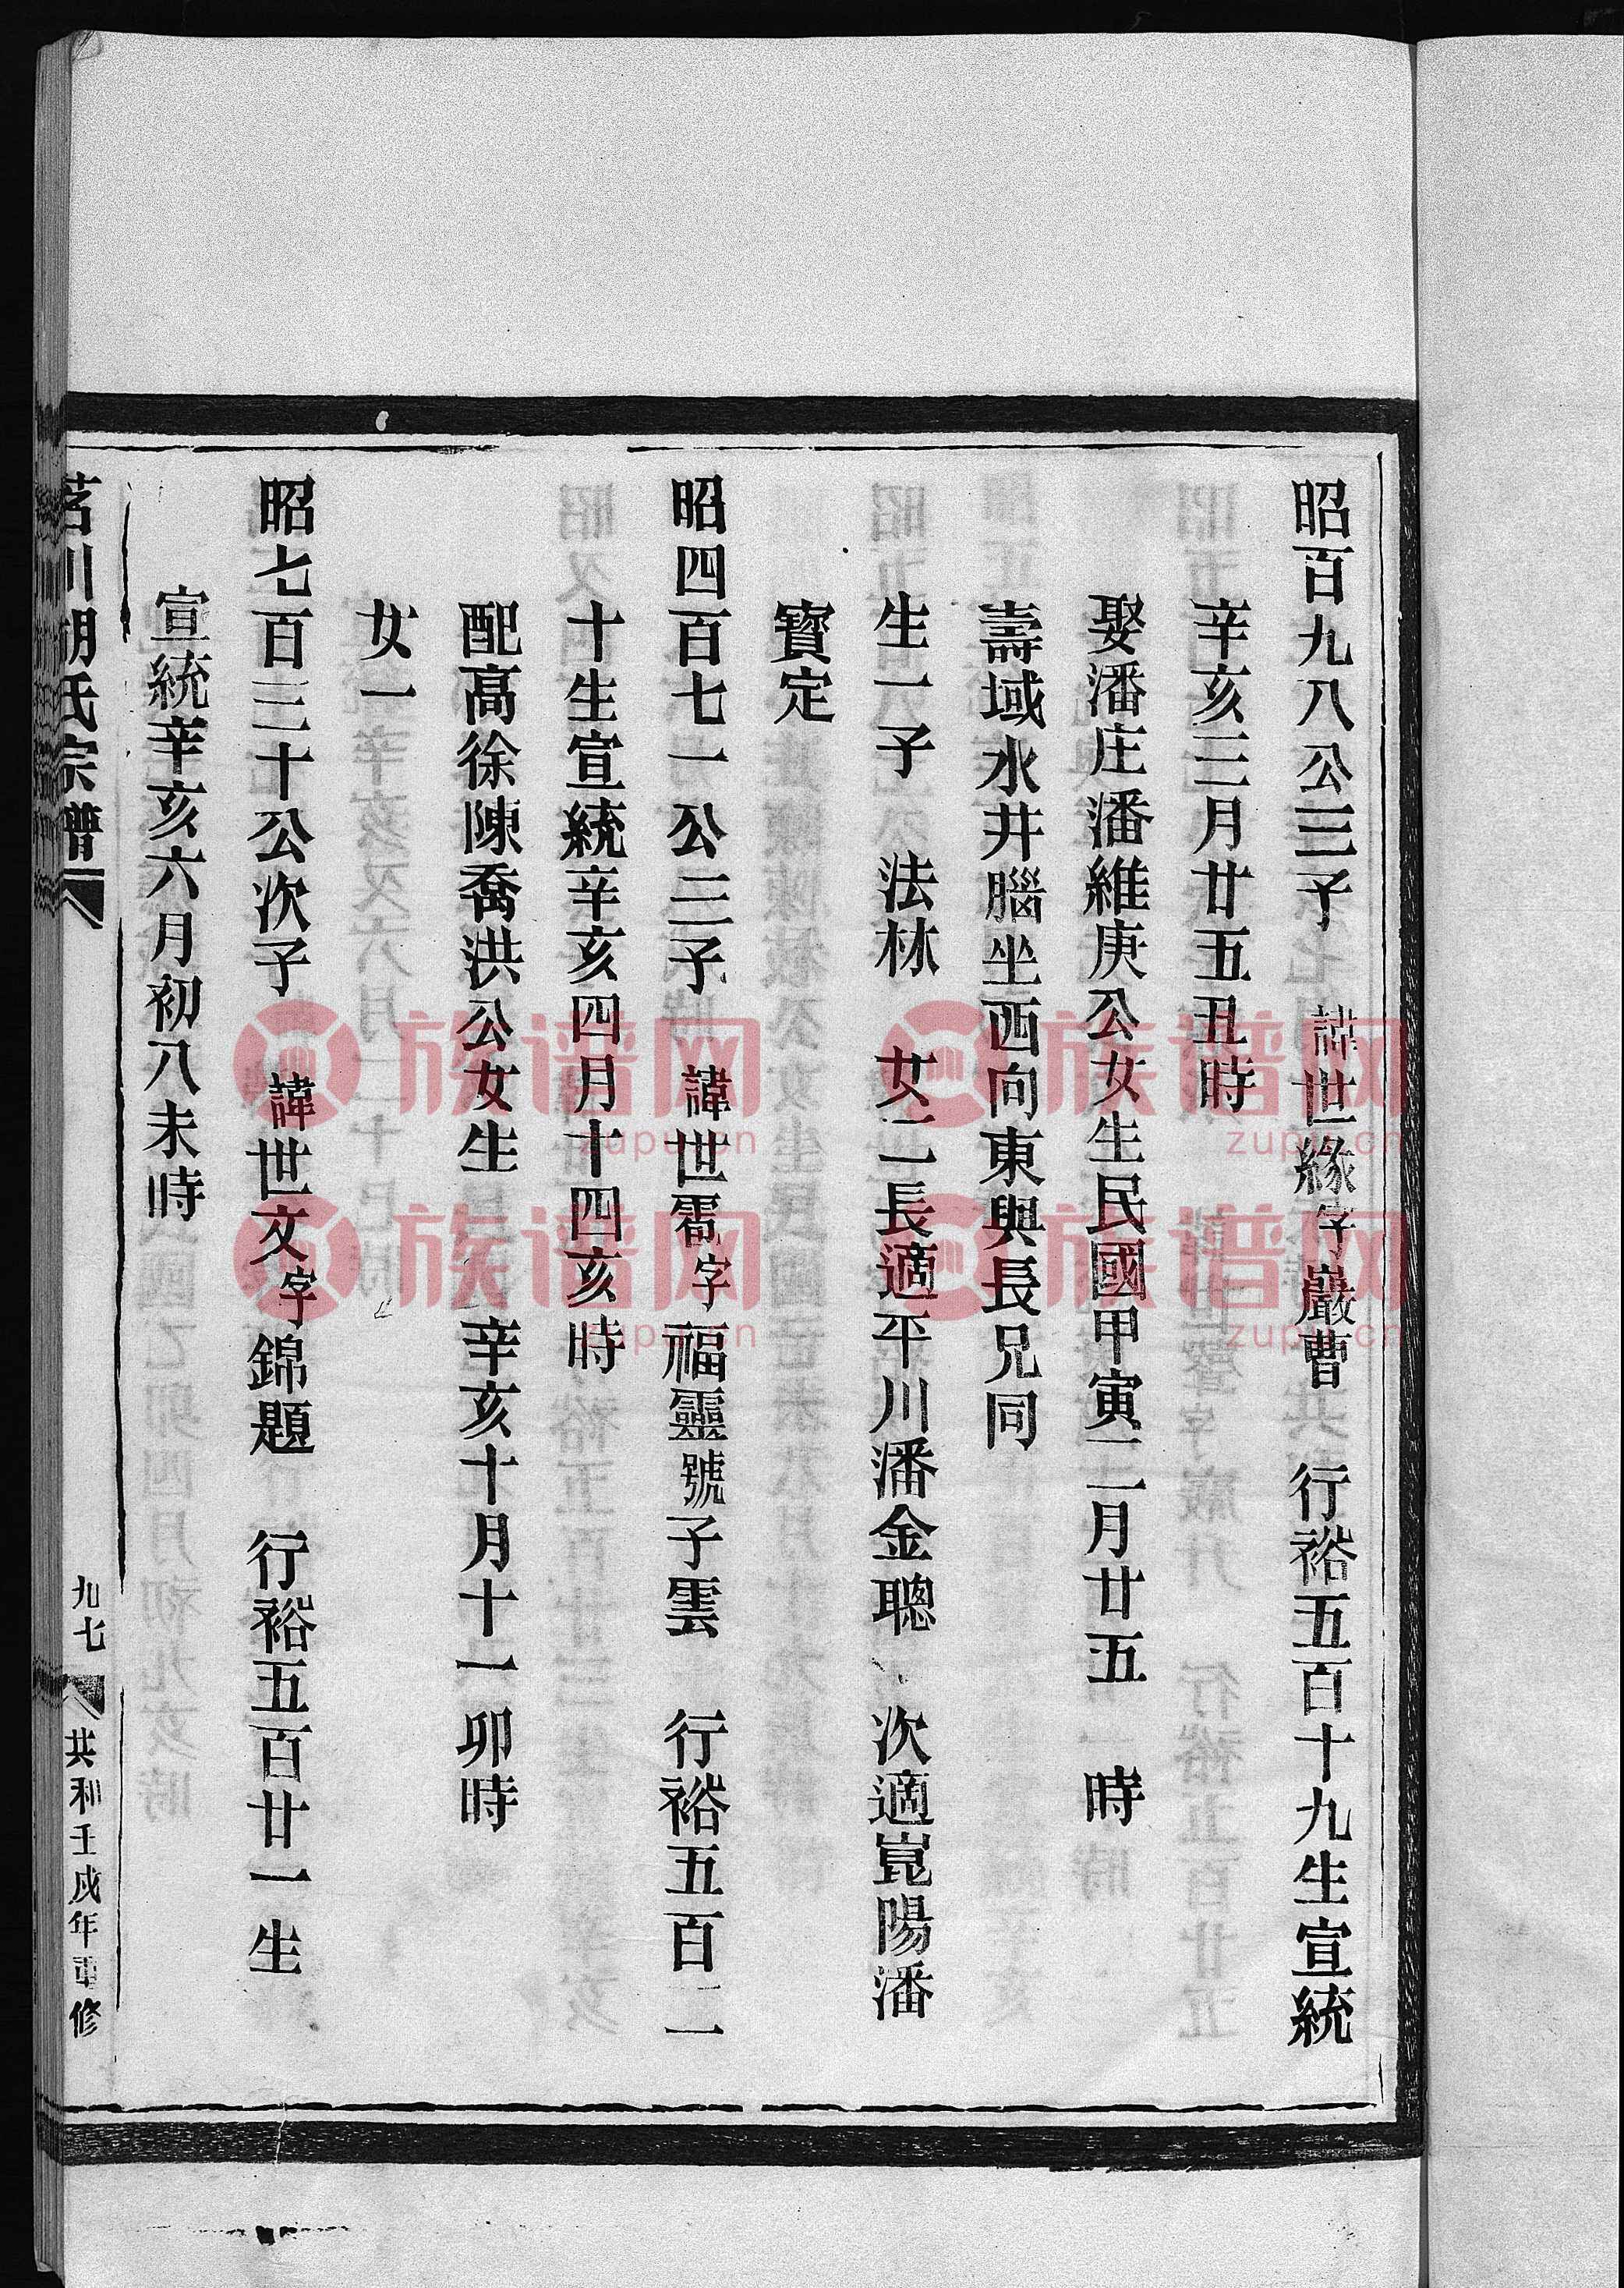 昭百九八公三子 諱世緣字巖曹 行裕五百十九生宣統
辛亥三月廿五丑時
娶潘庄潘維庚公女生民國甲寅二月廿五 時
壽域水井腦坐西向東與長兄同
生一子 法林 女二長適平川潘金聰 次適崑陽潘
寶定
昭四百七一公三子 諱世霱字福靈號子雲 行裕五百二
十生宣統辛亥四月十四亥時
配高徐陳喬洪公女生 辛亥十月十一卯時
女一
昭七百三十公次子 諱世文字錦題 行裕五百廿一生
宣統辛亥六月初八未時
茗川胡氏宗譜
九七
共和壬戌年重修
族谱网
zupu.cn
族谱网
zupu.cn
族谱网
zupu.cn
族谱网
zupu.cn